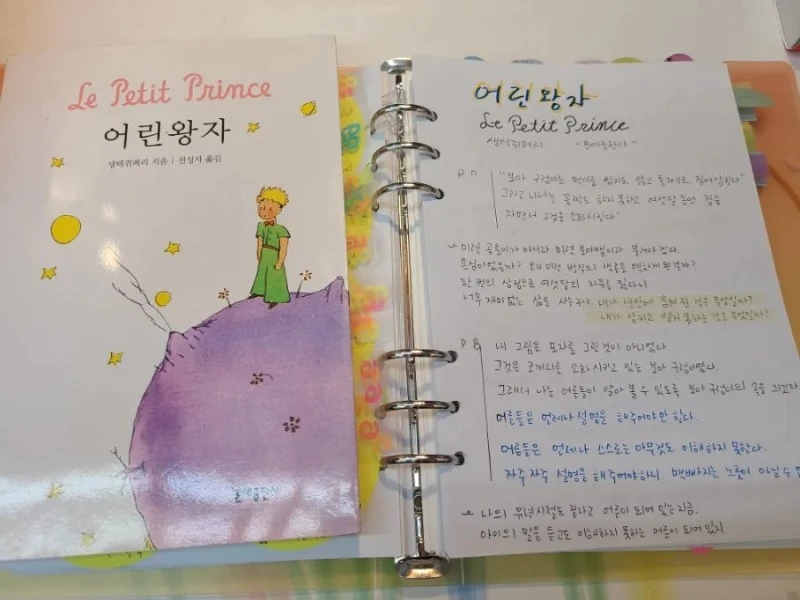 Le Petit Prince
어린왕자
생텍쥐페리 지음 | 전성자 옮김
문예출판사
어린왕자
Le Petit Prince
생텍쥐페리 - 문예출판사 -
"보아 구렁이는 먹이를 씹지도 않고 통째로 집어삼킨다"
그리고나서는 꼼짝도 하지 못하고 여섯달 동안 잠을
자면서 그것을 소화시킨다"
미련 곰퉁이가 아니라 미련 보아뱀이라 불러야 겠다.
욕심이었을까? 왜 이런 방식의 생을 택하게 된걸까?
한 번의 삼킴으로 여섯달의 자유를 잃다니
너무 재미없는 삶을 사는구나. 내가 생각없이 삼켜 된 것은 무엇일까?
내가 삼키고 뱉지 못하는 것은 무엇일까?
P 8 내 그림은 모자를 그린 것이 아니었다.
그것은 코끼리를 소화시키고 있는 보아 구렁이였다.
그래서 나는 어른들이 알아 볼 수 있도록 보아 구렁이의 속을 그렸다
어른들은 언제나 설명을 해주어야만 한다.
어른들은 언제나 스스로는 아무것도 이해하지 못한다.
자주 자주 설명을 해주어야하니 맥빠지는 노릇이 아닐 수 없
나의 유년시절도 끝나고 어른이 되어 있는 지금.
아이들의 말을 듣고도 이해하지 못하는 어른이 되어 있지